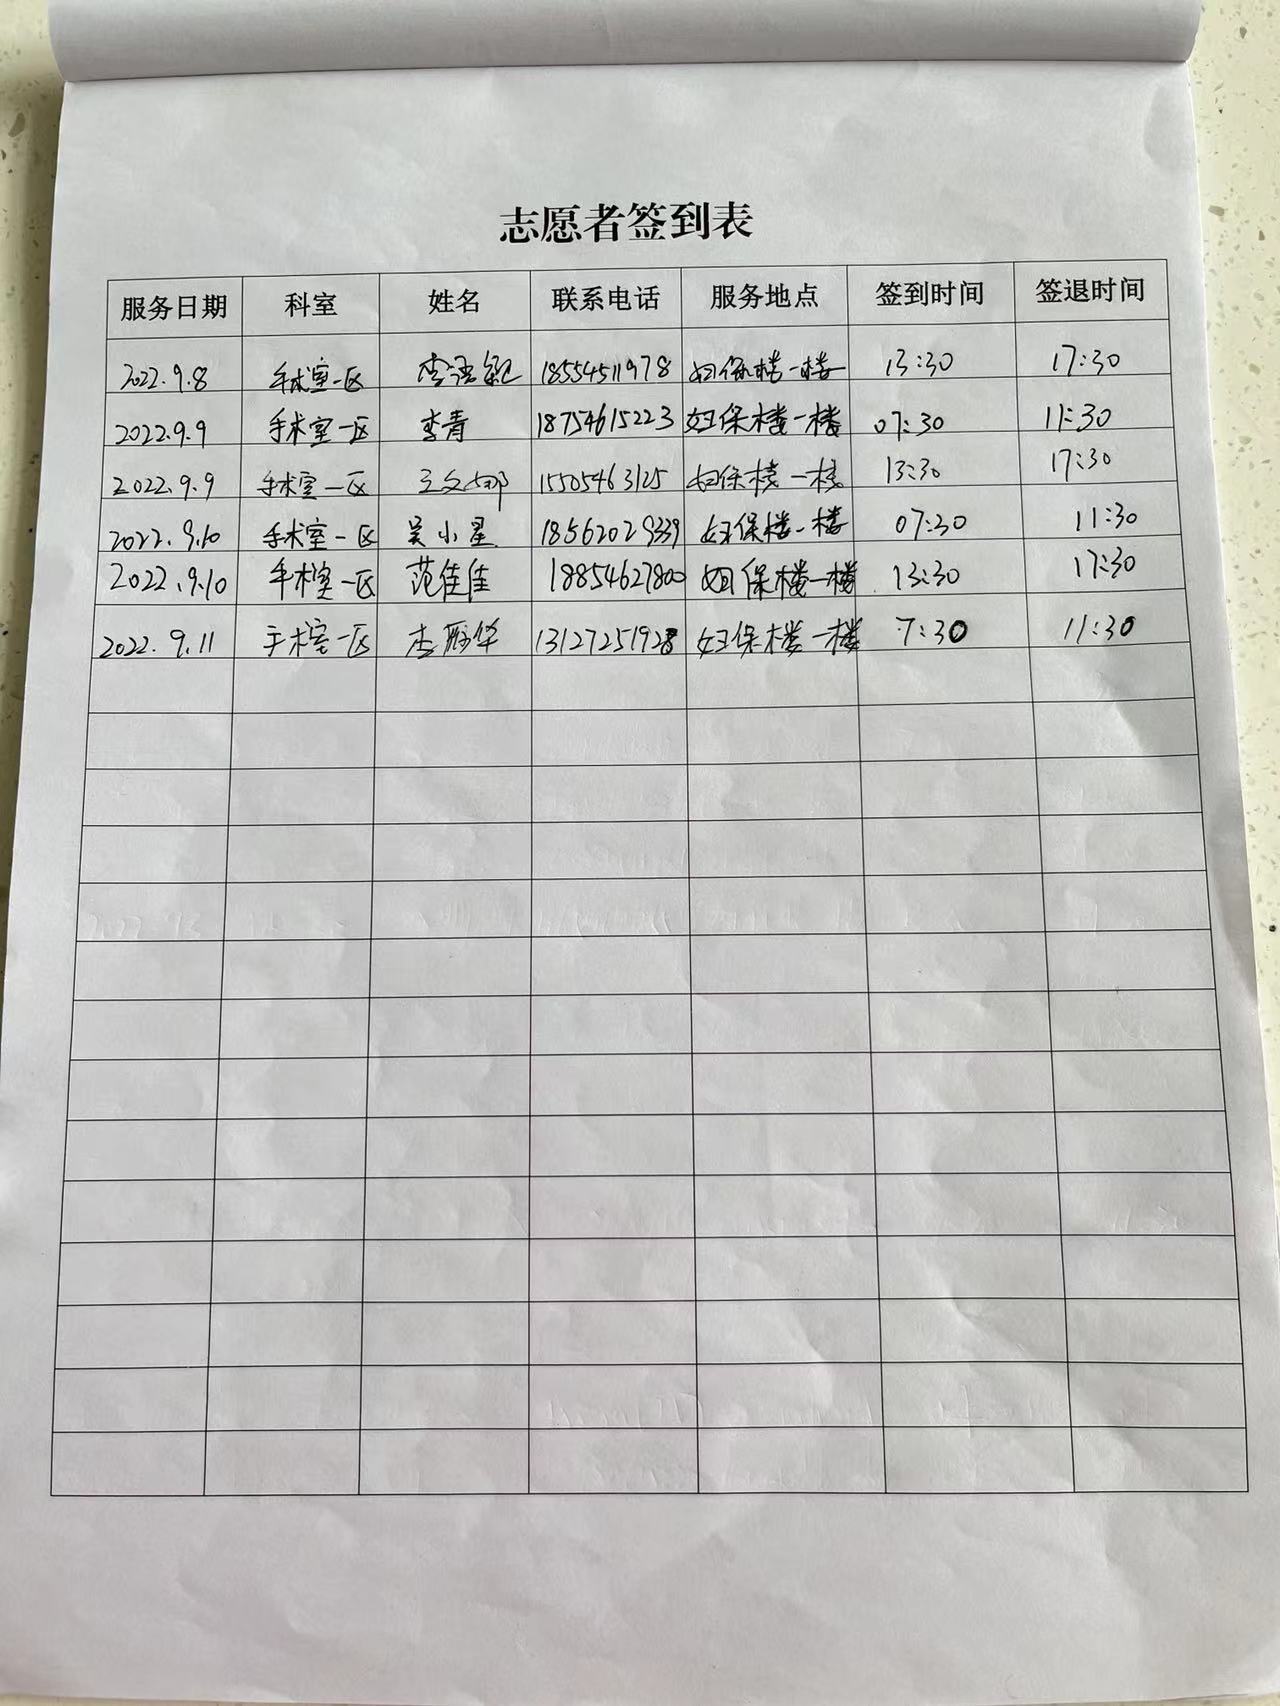 志愿者签到表
服务日期 科室 姓名 联系电话 服务地点 签到时间 签退时间
2022.9.8 手术室一区 李 18554511978 妇保楼一楼 13:30 17:30
2022.9.9 手术室一区 李青 18754615223 妇保楼一楼 07:30 11:30
2022.9.9 手术室一区 王文娜 15505463125 妇保楼一楼 13:30 17:30
2022.9.10 手术室一区 吴小星 18562029339 妇保楼一楼 07:30 11:30
2022.9.10 手术室一区 范佳佳 18854627800 妇保楼一楼 13:30 17:30
2022.9.11 手术室一区 李丽华 13127251928 妇保楼一楼 7:30 11:30